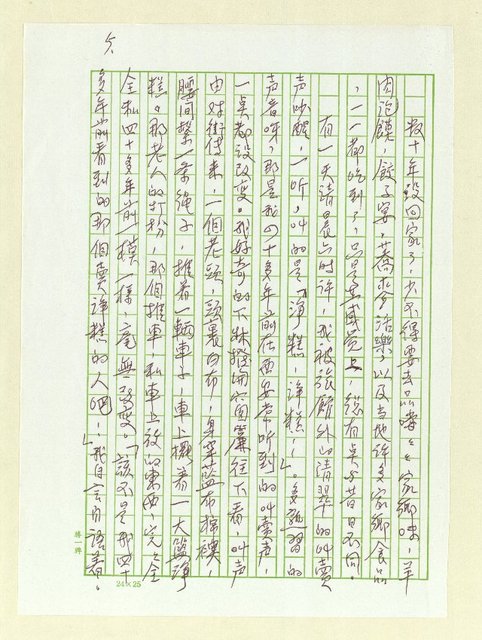 六
數十年沒回家了,少不得要去品嚐家鄉味,羊
肉泡饃,餃子宴,蕎麥活樂以及當地許多家鄉食品
,一一都吃到了,只是在感覺上,總有點與昔日不同。
有一天清晨六時許,我被旅館外的清翠的叫賣
声吵醒,一听,叫的是「净糕,净糕……」。多熟習的
声音呀,那是我四十多年前在西安常听到的叫賣声,
一點都沒改變。我好奇的下牀撥開窗簾往下看,叫声
由對街傳來,一個老頭,頭裹白布,身穿藍布棉襖
腰间繫一条绳子,推着一輛車子,車上擺着一大盤净
糕。那老人的打扮,那個推車,和車上放的東西,完全
全和四十多年前一模一樣,毫無改變。「該不是我四十
多年前看到的那個賣净糕的人吧!」我自言自語着。
勝一牌
24×25